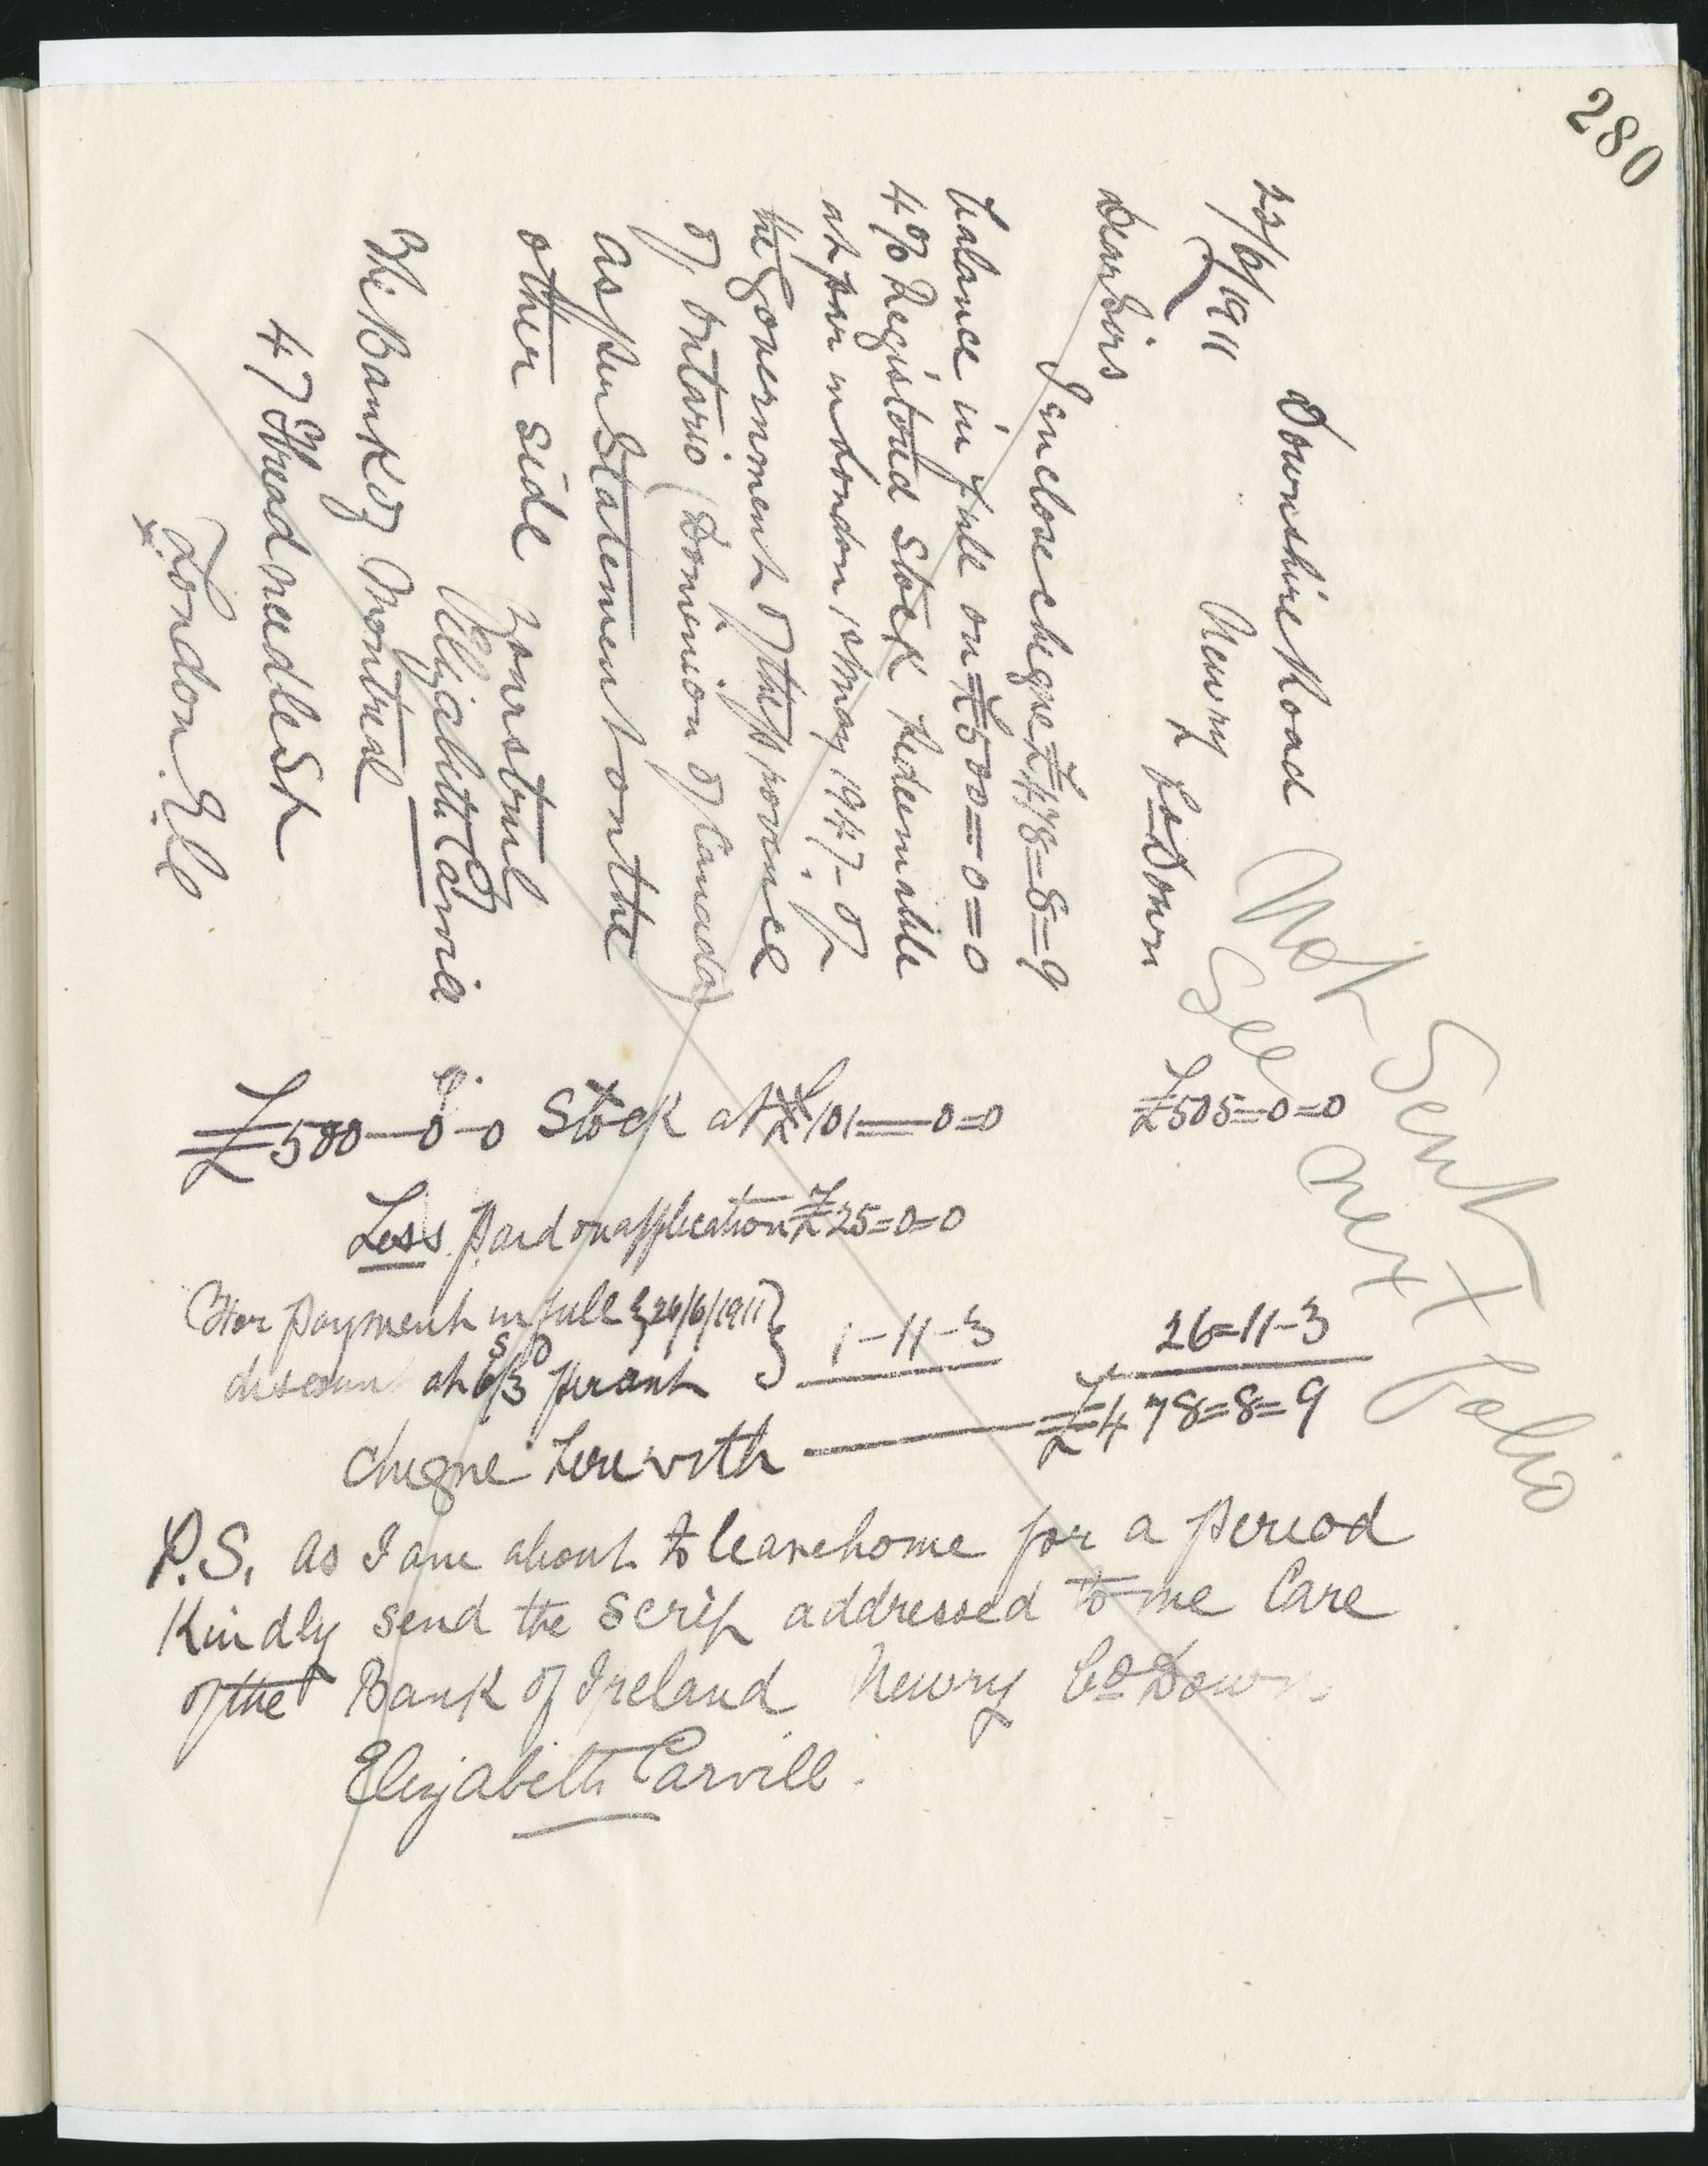 280
Downshire Road
Newry
Co Down
22/6/1911
Dear Sirs
I enclose cheque £478=8=9
balance in full on £500=0=0
4% Registered Stock redeemable
at par in London 1st May 1947 - of
the Government of the province
of Ontario (Dominion of Canada)
as per Statement on the
other side
Yours truly
Elizabeth Carvill
The Bank of Montreal
47 Threadneedle St
London. E.C
Not Sent
See next folio
£500-0-0 Stock at £101-0=0 £505=0=0
Less paid on application £25=0=0
for payment in full 26/6/1911
discount at 6/3 per cent 1-11-3 26=11-3
S D
cheque herewith £478=8=9
P.S. as I am about to leave home for a period
Kindly send the scrip addressed to me Care
of the Bank of Ireland Newry Co Down
Elizabeth Carvill.